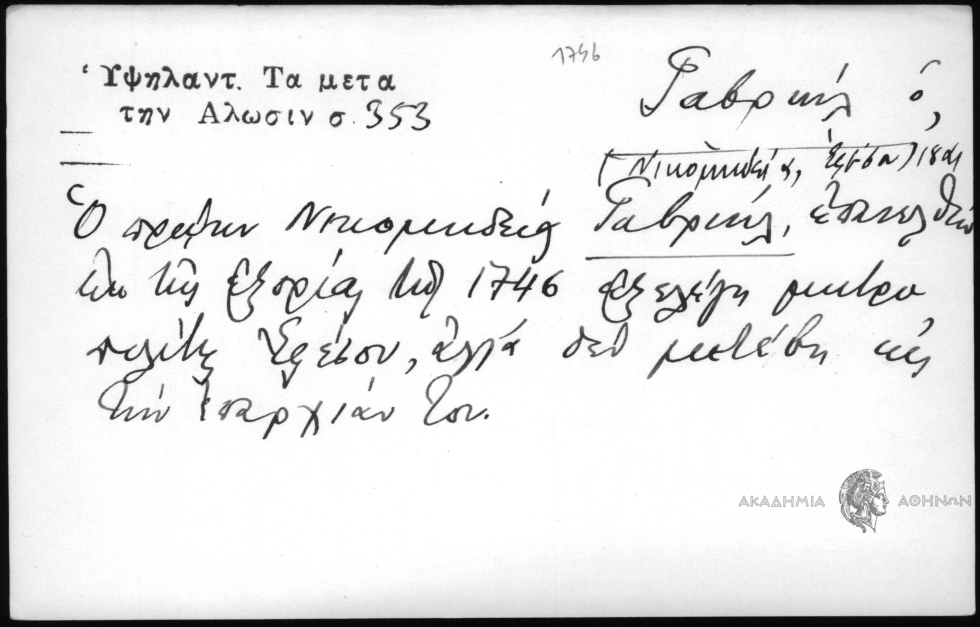 1746
Ὑψηλαντ. Τα μετα
την Αλωσιν σ. 353
Γαβριήλ ὁ,
(Νικομηδείας, Ἐφέσου) 18ος
Ὁ πρώην Νικομηδείας Γαβριήλ, ἐπανελθὼν
ἐκ τῆς ἐξορίας τῷ 1746 ἐξελέγη μητρο
πολίτης Ἐφέσου, ἀλλὰ δὲν μετέβη εἰς
τὴν ἐπαρχίαν του.
ΑΚΑΔΗΜΙΑ ΑΘΗΝΩΝ